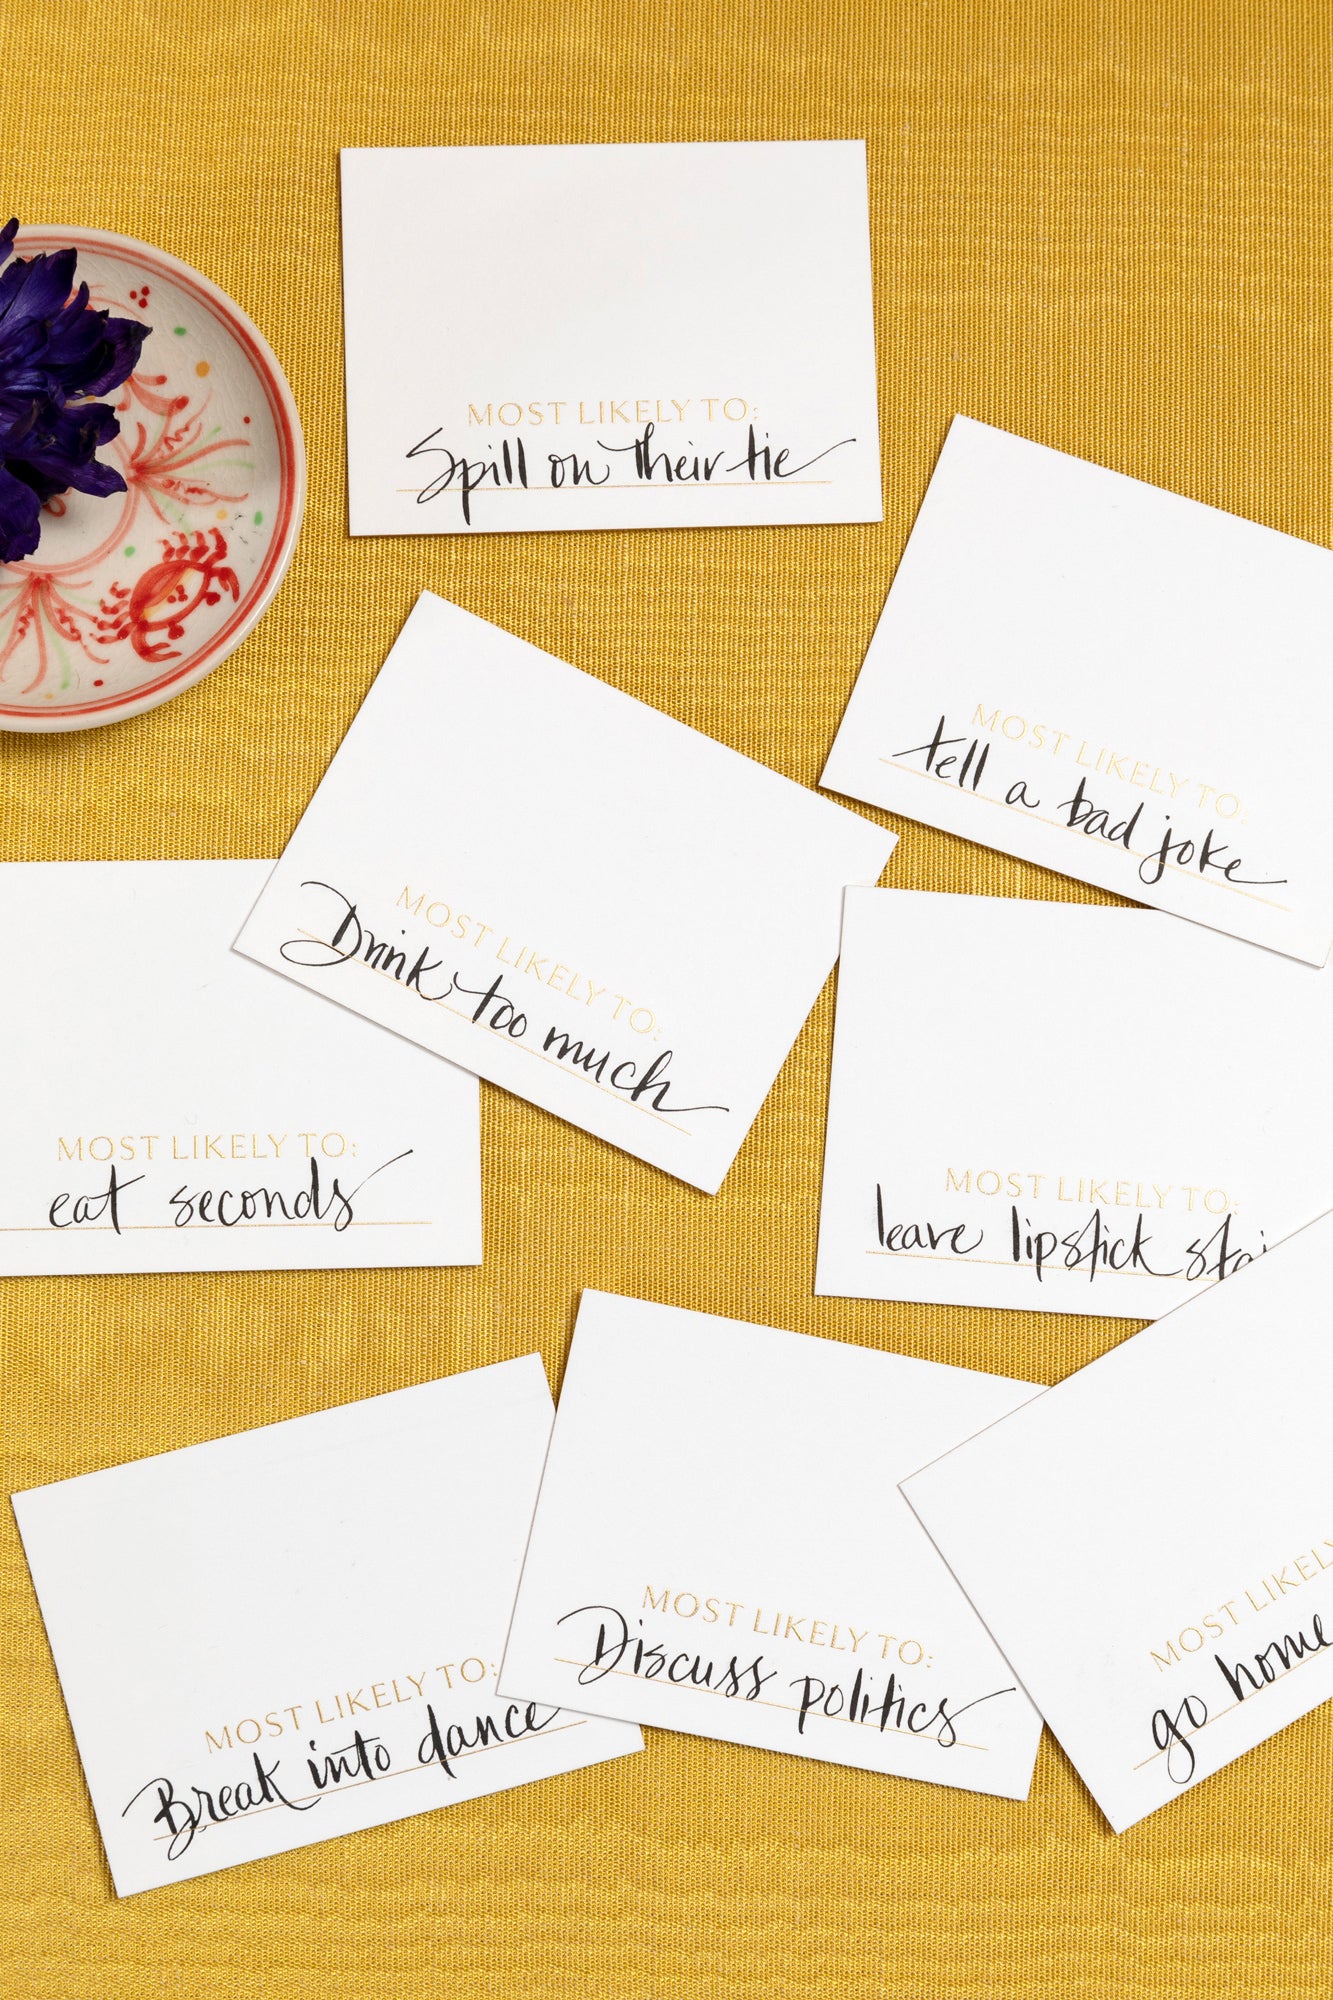 MOST LIKELY TO:
Spill on their tie
MOST LIKELY TO:
tell a bad joke
MOST LIKELY TO:
Drink too much
MOST LIKELY TO:
eat seconds
MOST LIKELY TO:
leave lipstick
MOST LIKELY TO:
Break into dance
MOST LIKELY TO:
Discuss politics
MOST LIKELY
go home